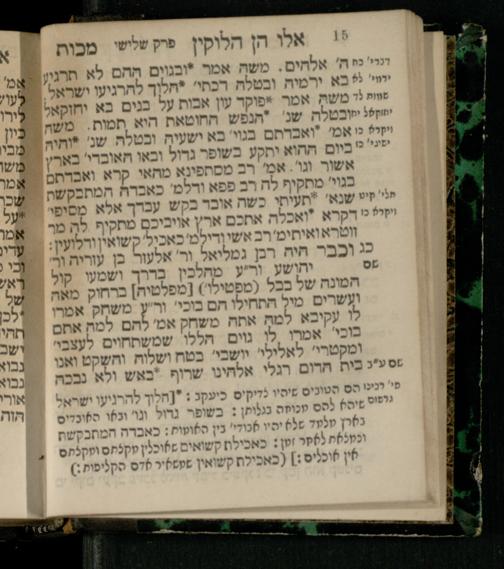 15 אלו הן הלוקין פרק שלישי מכות
דברי׳ כח ה׳ אלהים. משה אמר *ובגוים ההם לא תרגיע
ירמי׳ לא בא ירמיה ובטלה דכתי׳ *הלוך להרגיעו ישראל
שמות לד משה אמר *פוקד עון אבות על בנים בא יחזקאל
יחזקאל יח ובטלה שנ׳ *הנפש החוטאת היא תמות. משה
ויקרא כו אמ׳ *ואבדתם בגוי׳ בא ישעיה ובטלה שנ׳ *והיה
ישעי׳ כז ביום ההוא יתקע בשופר גדול ובאו האובדי׳ בארץ
אשור וגו׳. אמ׳ רב מסתפינא מהאי קרא ואבדתם
בגוי׳ מתקיף לה רב פפא ודלמ׳ כאבדה המתבקשת
תלי׳ קיט שנא׳ *תעיתי כשה אובד בקש עבדך אלא מסיפי׳
ויקרא כו דקרא *ואכלה אתכם ארץ אויביכם מתקיף לה מר
זוטרא ואיתימ׳ רב אשי ודילמ׳ כאכיל׳ קשואין ודלועין:
כג וכבר היה רבן גמליאל ור׳ אלעזר בן עזריה ור׳
שם יהושע ור״ע מהלכין בדרך ושמעו קול
המונה של בבל (מפטילו׳) [מפלטיה] ברחוק מאה
ועשרים מיל התחילו הם בוכי׳ ור״ע משחק אמרו
לו עקיבא למה אתה משחק אמ׳ להם למה אתם
בוכי׳ אמרו לו גוים הללו שמשתחוים לעצבי׳
ומקטרי׳ לאלילי׳ יושבי׳ בטח ושלוה והשקט ואנו
שם ע״ב בית הדום רגלי אלהינו שרוף *באש ולא נבכה
פי׳ רבינו הם הטובים שיהיו צדיקים כיעקב: *[הלוך להרגיעו ישראל
גרשום שיהא להם מנוחה בגלותן: בשופר גדול וגו׳ ובאו האובדים
בארץ מלמד שלא יהיו אבודי׳ בין האומות: כאבדה המתבקשת
ונמצאת לאחר זמן: כאכילת קשואים שאוכלין מקלתם ומקלתם
אין אוכלים:] (כאכילת קשואין שמשאיר אדם הקליפות:)